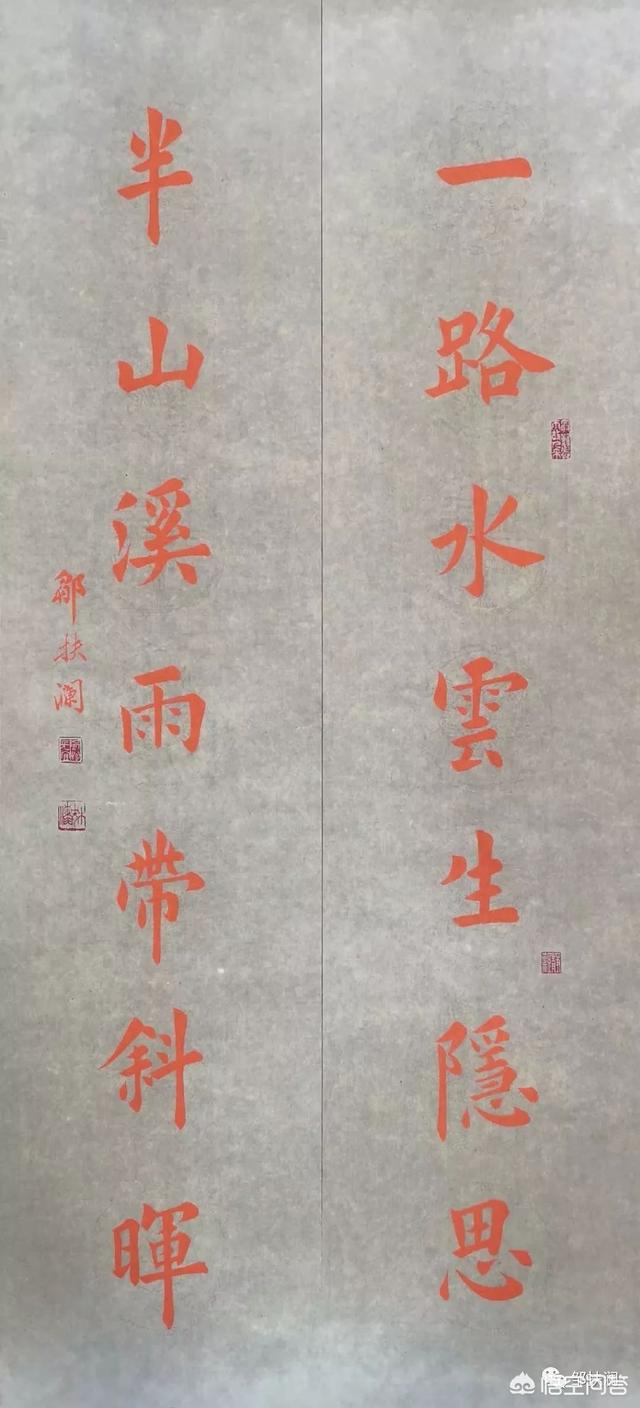 一路水雲生隱思
半山溪雨帶斜暉
鄒扶澜
邹扶澜
悟空问答